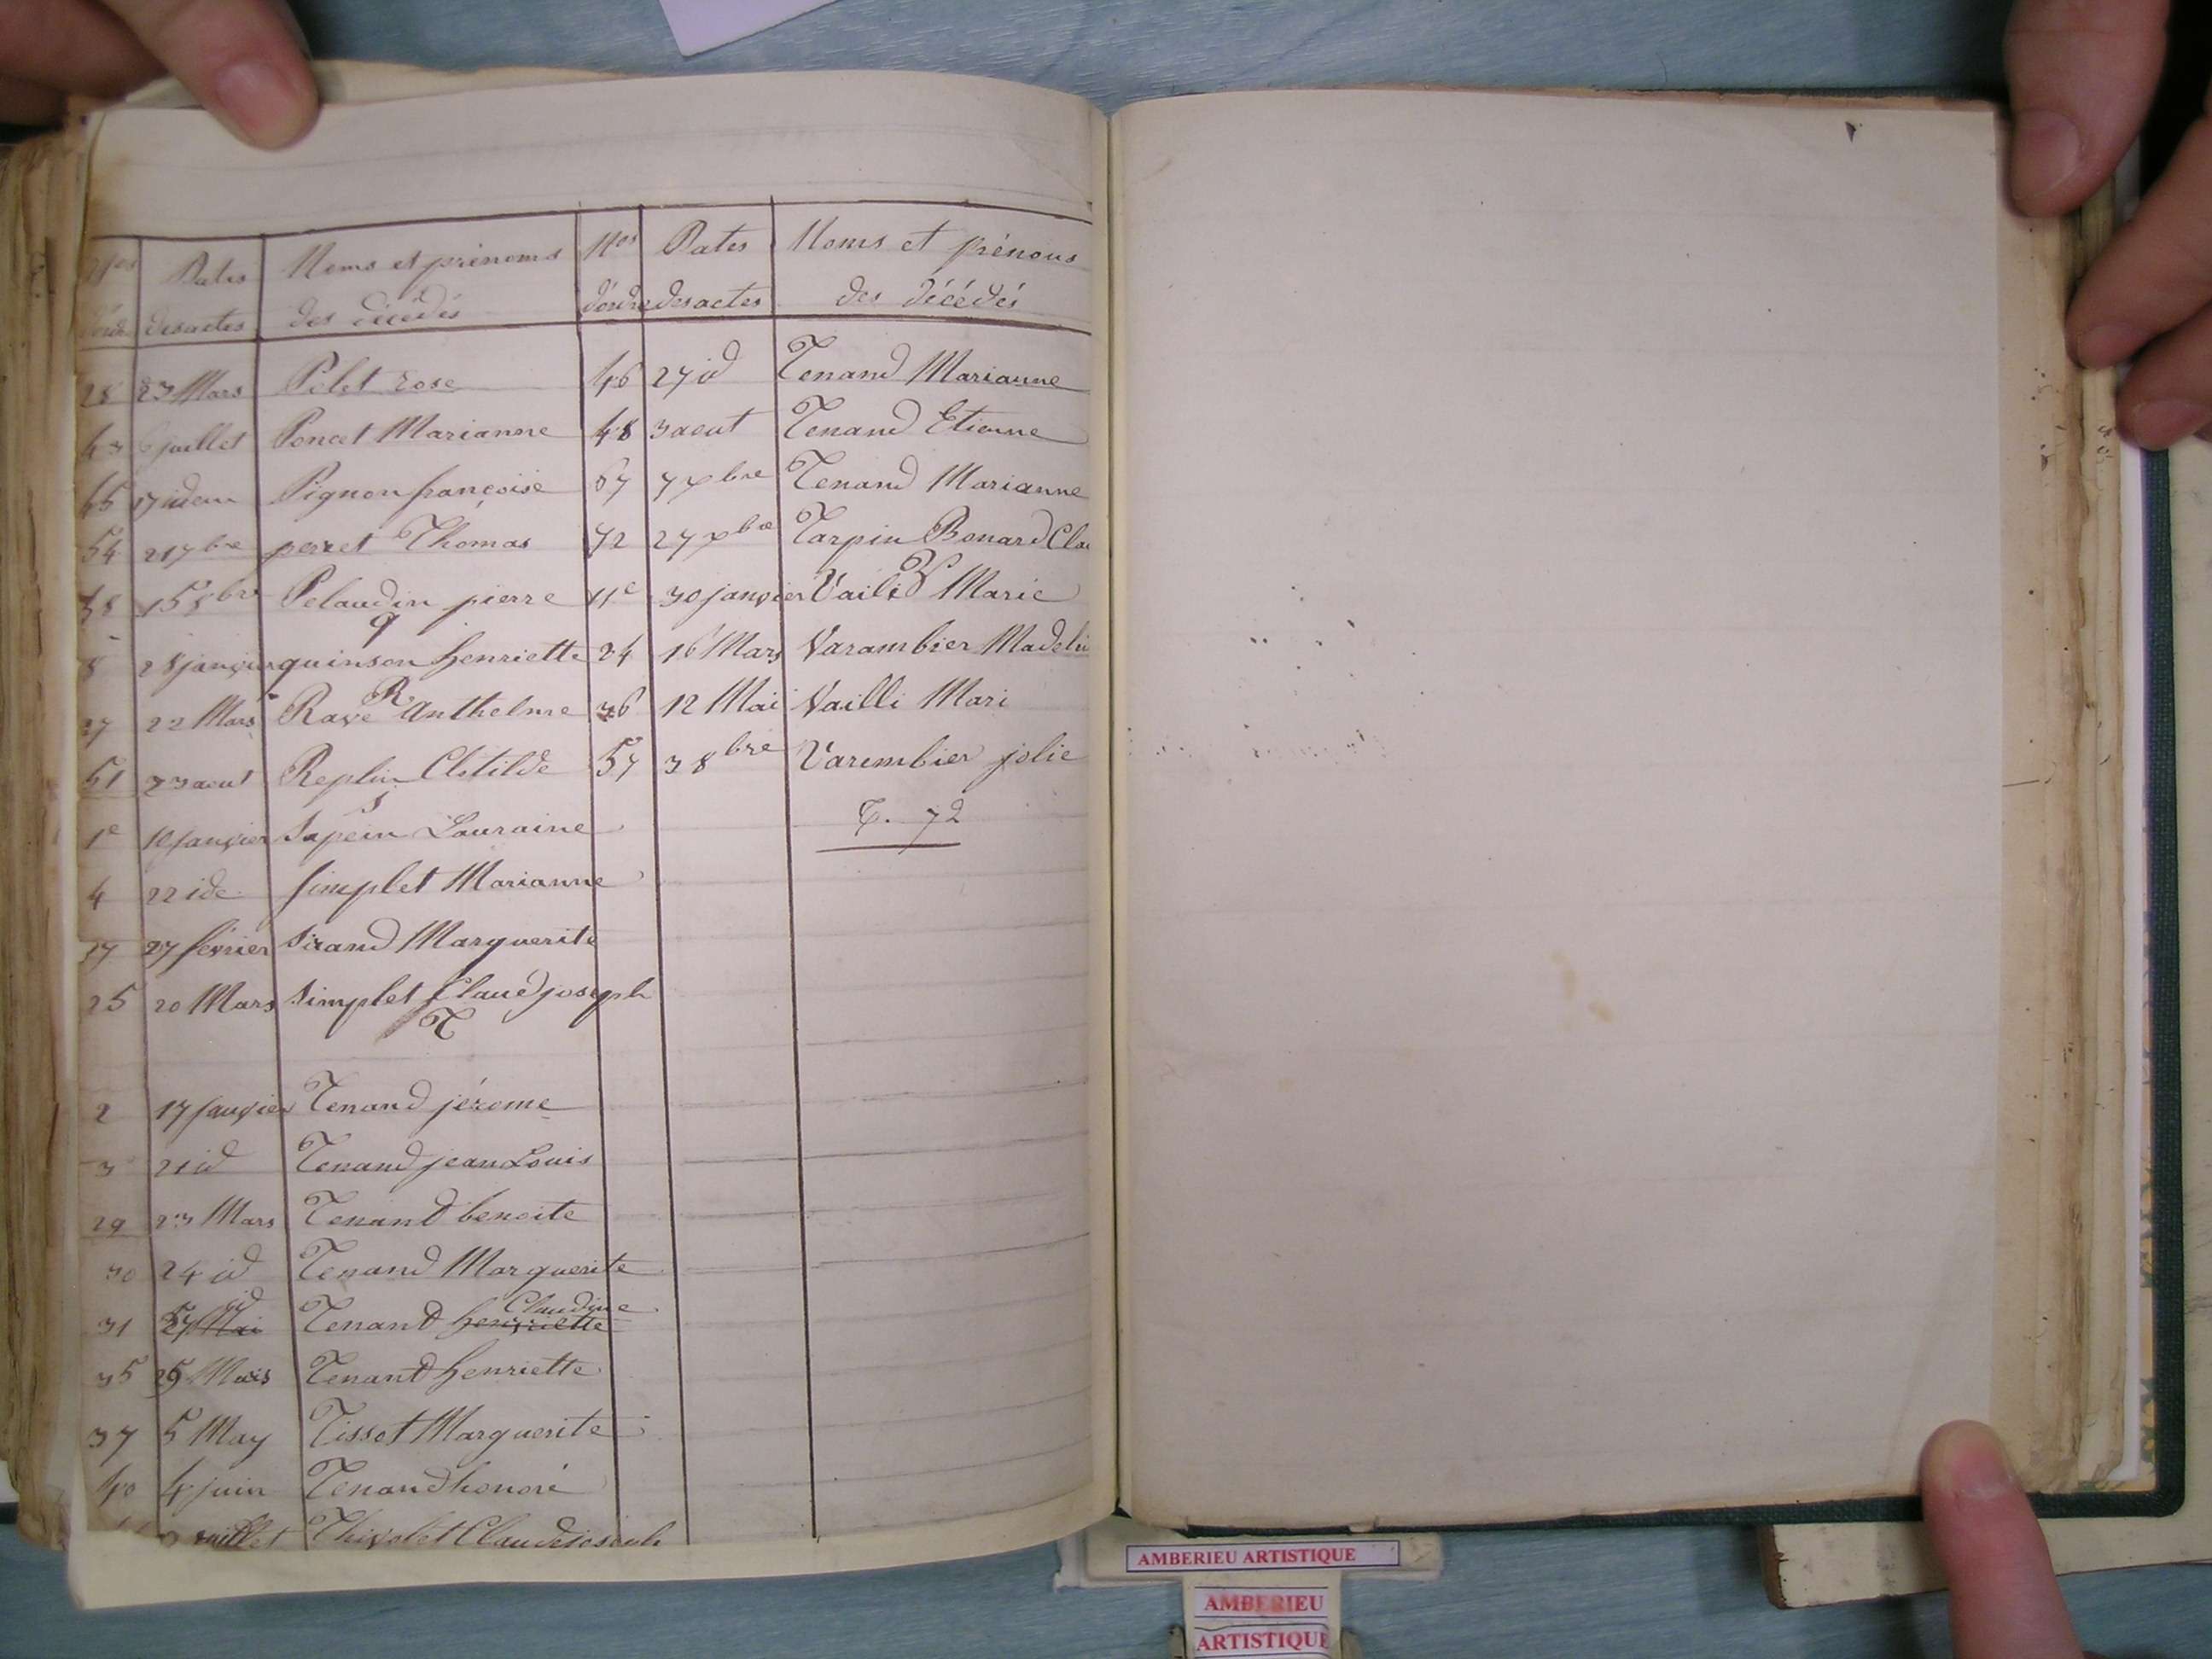 Nos Dates Noms et prénoms
d'ordre des actes des décédés
28 23 Mars Pelet rose
43 6 juillet Poncet Marianne
45 17 idem Pignon françoise
54 21 7bre perret Thomas
58 15 8bre Pelaudin pierre
q
8 28 janvier quinson henriette
R
27 22 Mars Rave Anthelme
51 23 aout Replin Clotilde
S
1e 10 janvier Sapein Lauraine
4 22 ide simplet Marianne
17 27 février Sirand Marguerite
25 20 Mars Simplet Claud joseph
T
2 17 janvier Tenand jérome
3 21 id Tenand jean Louis
29 23 Mars Tenand benoite
30 24 id Tenand Marguerite
id Claudine
31 27 Mai Tenand henriette
35 29 Mars Tenand henriette
37 5 May Tissot Marguerite
40 4 juin Tenand honoré
juillet Thivolet Claude joseph
Nos Dates Noms et prénoms
d'ordre des actes des décédés
46 27 id Tenand Marianne
48 3 aout Tenand Etienne
67 7 xbre Tenand Marianne
72 27 xbre Tarpin Bonard Cla
V
11e 30 janvier Vaili Marie
24 16 Mars Varambier Madeli
36 12 Mai Vailli Mari
57 3 8bre Varembier jolie
T. 72
AMBERIEU ARTISTIQUE
AMBERIEU
ARTISTIQUE